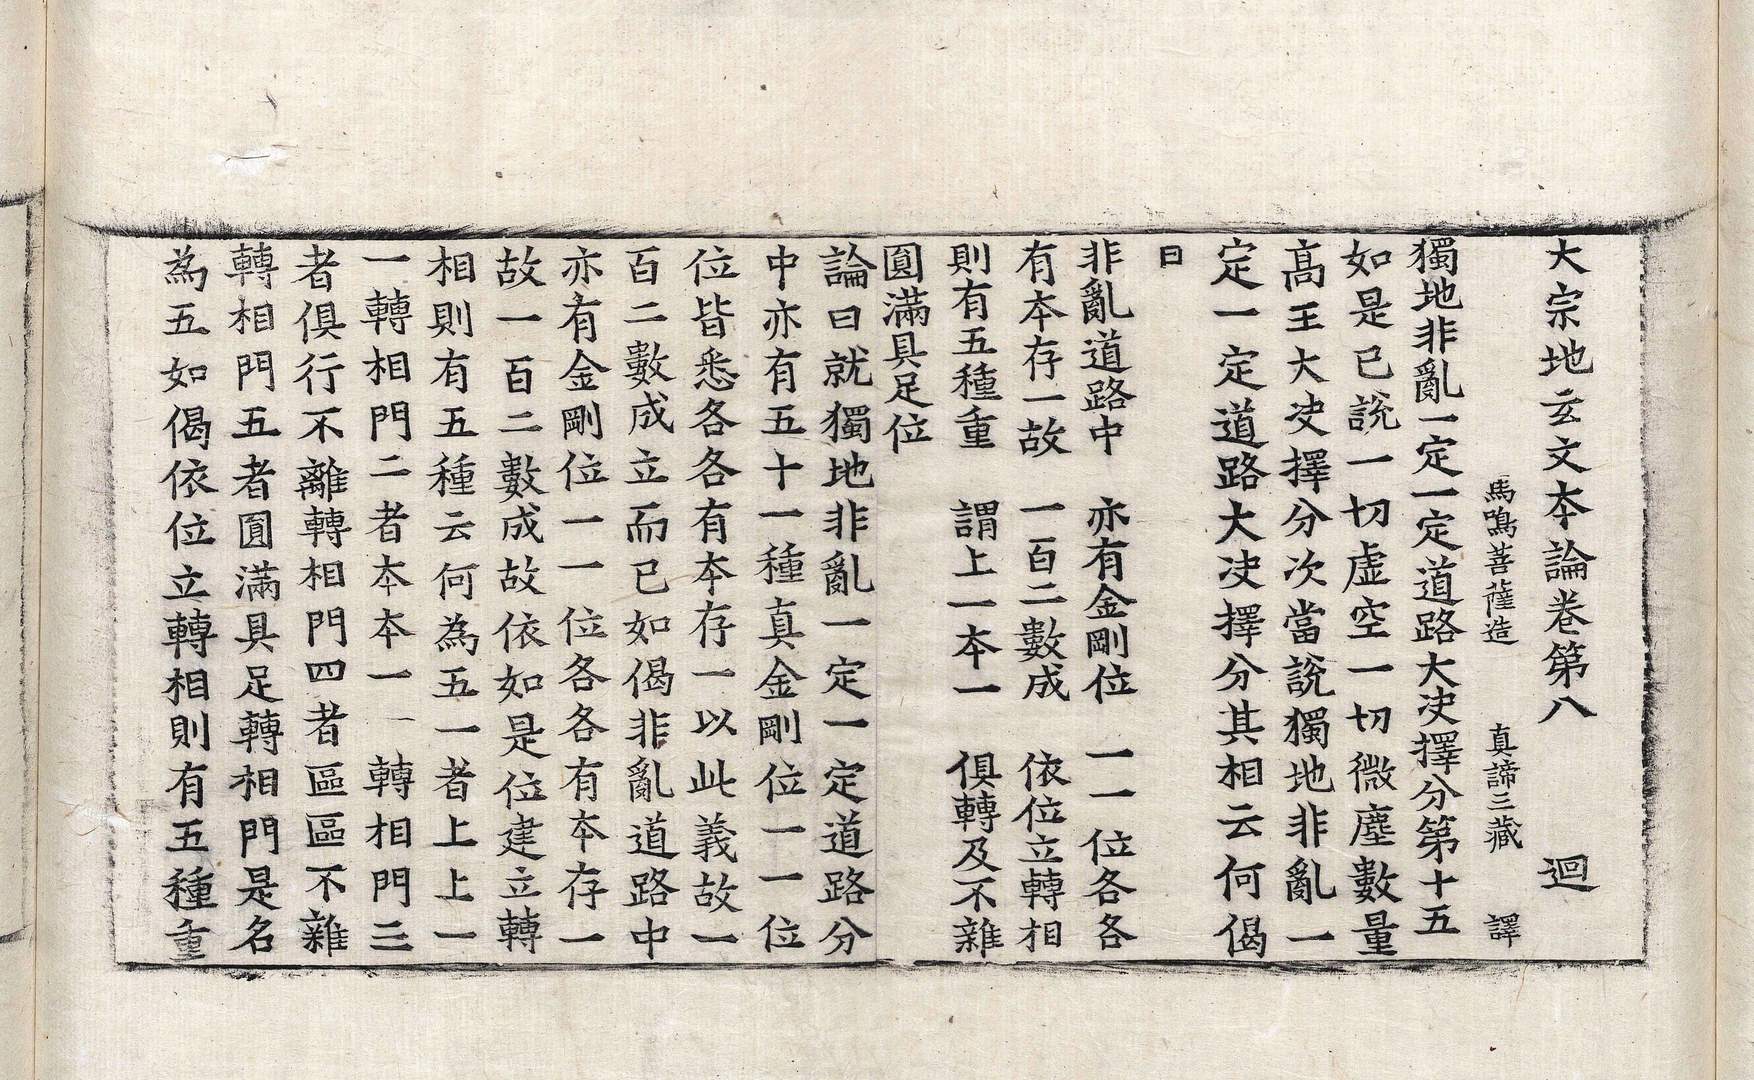 大宗地玄文本論卷第八　迴
馬鳴菩薩造　真諦三藏　譯
獨地非亂一定一定道路大决擇分第十五
如是已說一切虛空一切微塵數量
高王大决擇分次當說獨地非亂一
定一定道路大决擇分其相云何偈
曰
非亂道路中　亦有金剛位　一一位各各
有本存一故　一百二數成　依位立轉相
則有五種重　謂上一本一　俱轉及不雜
圓滿具足位
論曰就獨地非亂一定一定道路分
中亦有五十一種真金剛位一一位
位皆悉各各有本存一以此義故一
百二數成立而已如偈非亂道路中
亦有金剛位一一位各各有本存一
故一百二數成故依如是位建立轉
相則有五種云何為五一者上上一
一轉相門二者本本一一轉相門三
者俱行不離轉相門四者區區不雜
轉相門五者圓滿具足轉相門是名
為五如偈依位立轉相則有五種重